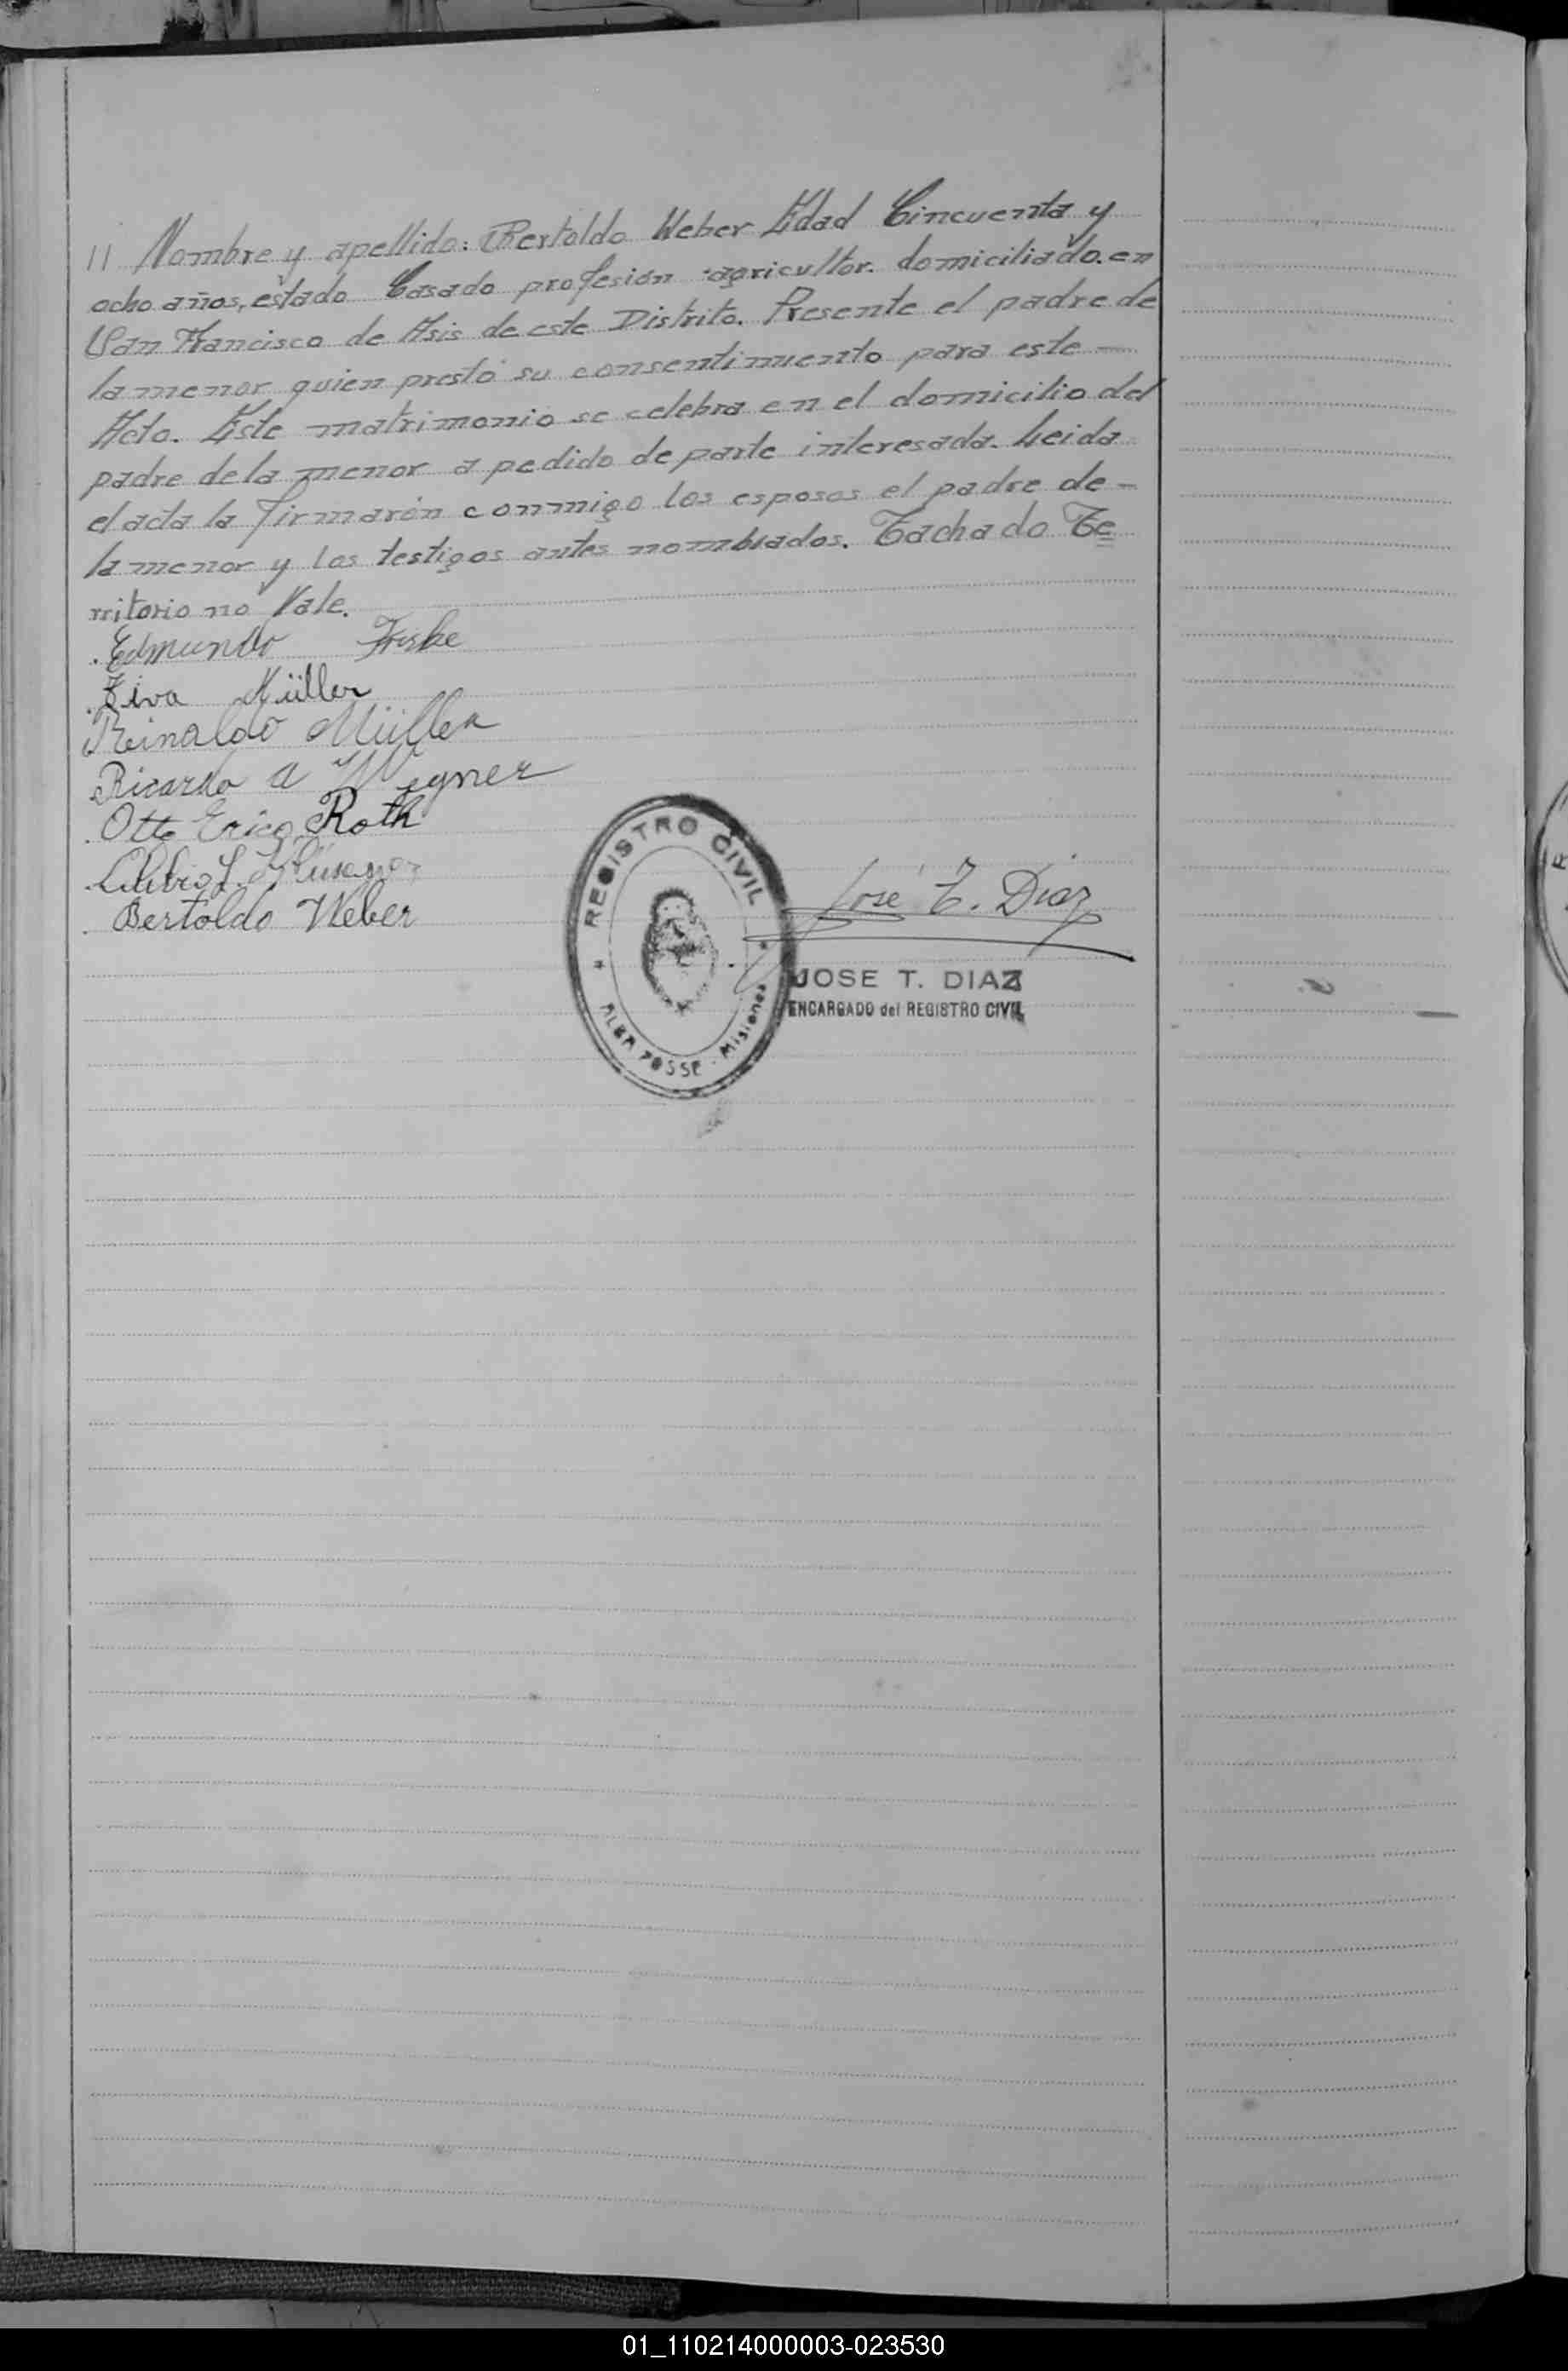 11 Nombre y apellido: Bertoldo Weber Edad Cincuenta y
ocho años, estado Casado profesión agricultor. domiciliado. en
San Francisco de Asis de este Distrito. Presente el padre de
la menor quien prestó su consentimiento para este —
Acto. Este matrimonio se celebra en el domicilio del
padre de la menor a pedido de parte interesada. Leida
el acta la firmarón conmigo los esposos el padre de —
la menor y los testigos antes nombrados. Tachado Te
rritorio no Vale.
Edmundo
Müller
Reinaldo Müller
Ricardo A Wegner
Otto Erico Roth
Bertoldo Weber
José T. Diaz
REGISTRO CIVIL
ALBA POSSE - Misiones
JOSE T. DIAZ
ENCARGADO del REGISTRO CIVIL
01_110214000003-023530